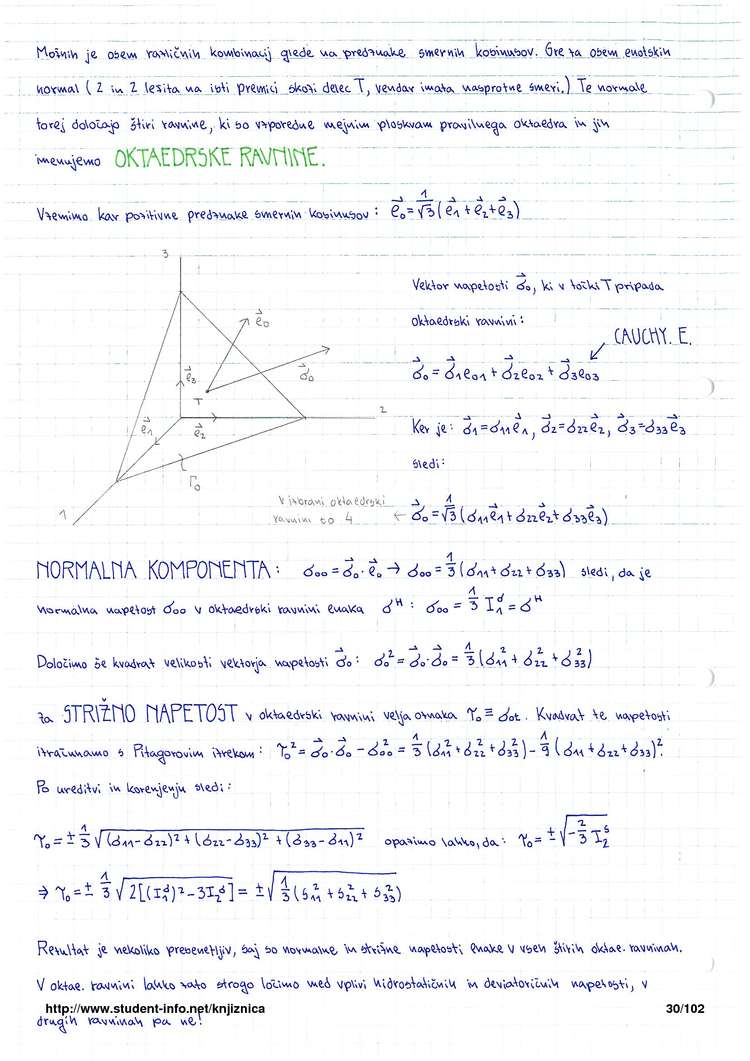 Možnih je osem različnih kombinacij glede na predznake smernih kosinusov. Gre za osem enotskih
normal (2 in 2 ležita na isti premici skozi delec T, vendar imata nasprotne smeri.) Te normale
torej določajo štiri ravnine, ki so vzporedne mejnim ploskvam pravilnega oktaedra in jih
imenujemo OKTAEDRSKE RAVNINE.
Vzemimo kar pozitivne predznake smernih kosinusov: e⃗₀ = 1/√3 (e⃗₁ + e⃗₂ + e⃗₃)
3
e⃗₀
σ⃗₀
e⃗₃
T
2
e⃗₁
e⃗₂
Γ₀
1
Vektor napetosti σ⃗₀, ki v točki T pripada
oktaedrski ravnini:
CAUCHY. E.
σ⃗₀ = σ⃗₁e₀₁ + σ⃗₂e₀₂ + σ⃗₃e₀₃
Ker je: σ⃗₁=σ₁₁e⃗₁, σ⃗₂=σ₂₂e⃗₂, σ⃗₃=σ₃₃e⃗₃
sledi:
V izbrani oktaedrski
ravnini so 4
← σ⃗₀ = 1/√3 (σ₁₁e⃗₁ + σ₂₂e⃗₂ + σ₃₃e⃗₃)
NORMALNA KOMPONENTA: σ₀₀ = σ⃗₀ · e⃗₀ → σ₀₀ = 1/3 (σ₁₁ + σ₂₂ + σ₃₃) sledi, da je
normalna napetost σ₀₀ v oktaedrski ravnini enaka σᴴ: σ₀₀ = 1/3 I₁^σ = σᴴ
Določimo še kvadrat velikosti vektorja napetosti σ⃗₀: σ₀² = σ⃗₀ · σ⃗₀ = 1/3 (σ₁₁² + σ₂₂² + σ₃₃²)
Za STRIŽNO NAPETOST v oktaedrski ravnini velja oznaka τ₀ ≡ σ₀t. Kvadrat te napetosti
izračunamo s Pitagorovim izrekom: τ₀² = σ⃗₀ · σ⃗₀ − σ₀₀² = 1/3 (σ₁₁² + σ₂₂² + σ₃₃²) − 1/9 (σ₁₁ + σ₂₂ + σ₃₃)².
Po ureditvi in korenjenju sledi:
τ₀ = ± 1/3 √((σ₁₁−σ₂₂)² + (σ₂₂−σ₃₃)² + (σ₃₃−σ₁₁)²) opazimo lahko, da: τ₀ = ± √(−2/3 I₂^s)
⇒ τ₀ = ± 1/3 √(2[(I₁^σ)² − 3I₂^σ]) = ± √(1/3 (s₁₁² + s₂₂² + s₃₃²))
Rezultat je nekoliko presenetljiv, saj so normalne in strižne napetosti enake v vseh štirih oktae. ravninah.
V oktae. ravnini lahko zato strogo ločimo med vplivi hidrostatičnih in deviatoričnih napetosti, v
http://www.student-info.net/knjiznica 30/102
drugih ravninah pa ne!